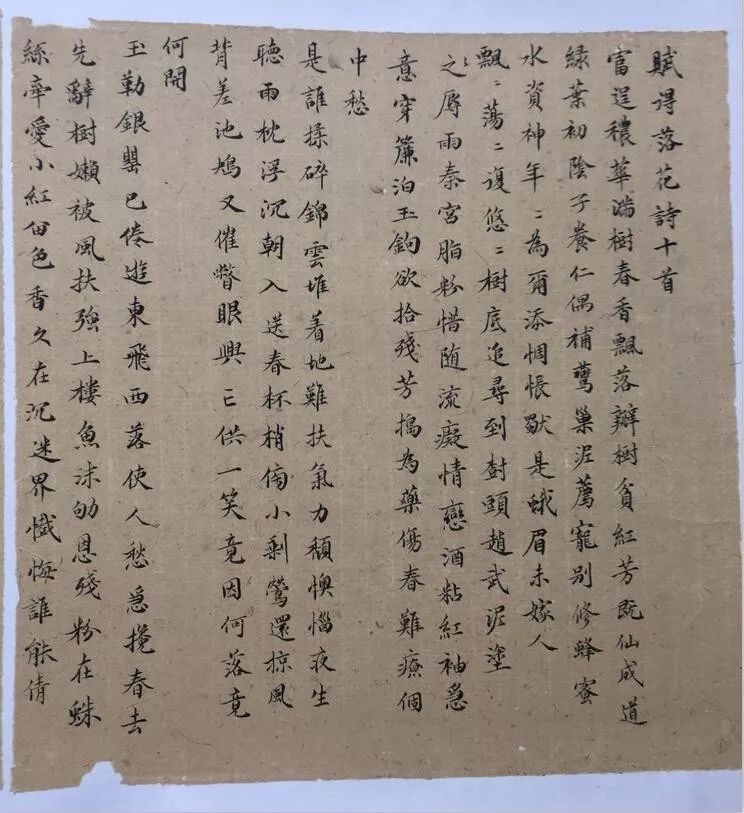 賦得落花詩十首
富逞穠華滿樹春香飄落瓣樹貧紅芳既仙成道
綠葉初陰子養仁偶補鶯巢泥薦寵別修蜂蜜
水資神年〻為爾添惆悵獃是蛾眉未嫁人
飄〻蕩〻復悠〻樹底追尋到樹頭趙武泥塗
之辱雨秦宮脂粉惜随流癡情戀酒粘紅袖急
意穿簾泊玉鉤欲拾殘芳搗為藥傷春難療個
中愁
是誰揉碎錦雲堆着地難扶氣力頹懊惱夜生
聽雨枕浮沉朝入送春杯梢小剩鶯還掠風
背差池鳩又催瞥眼興亡供一笑竟因何落竟
何開
玉勒銀罌已倦遊東飛西落使人愁急攙春去
先辭樹嬾被風扶強上樓魚沫劬恩殘粉在蛛
絲牽愛小紅留色香久在沉迷界懺悔誰能倩